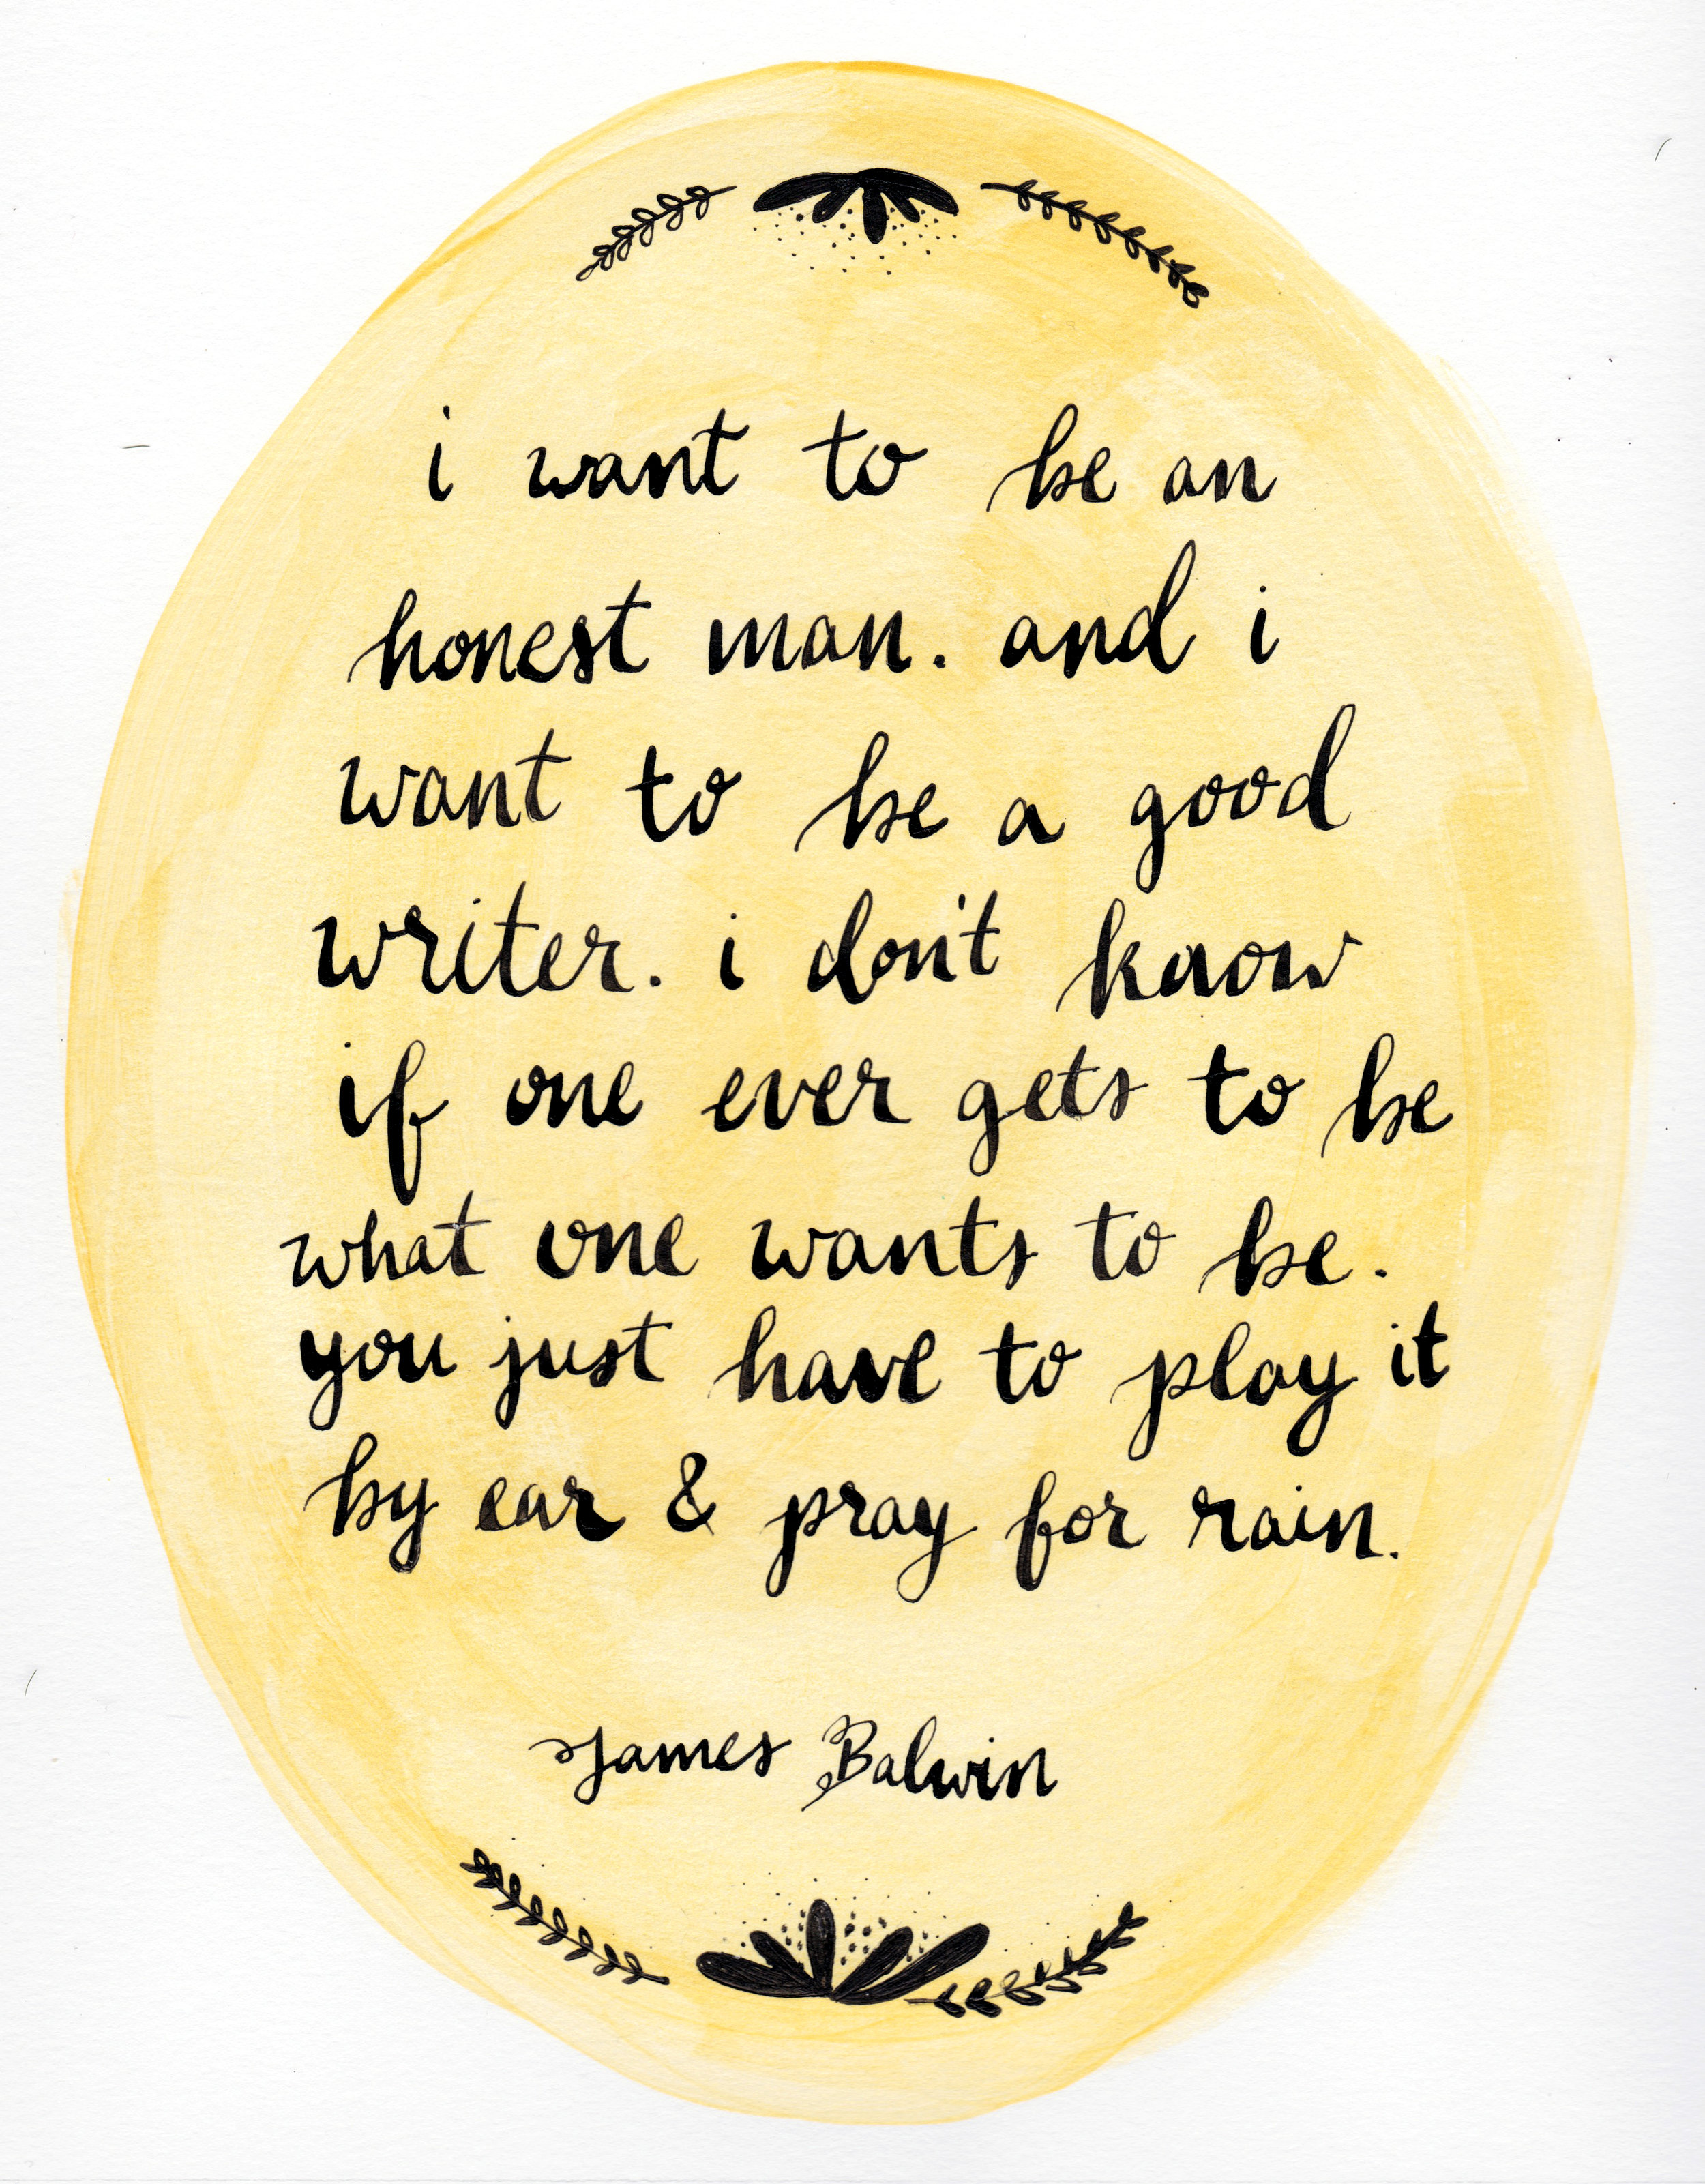 i want to be an
honest man. and i
want to be a good
writer. i don't know
if one ever gets to be
what one wants to be.
you just have to play it
by ear & pray for rain.
James Balwin